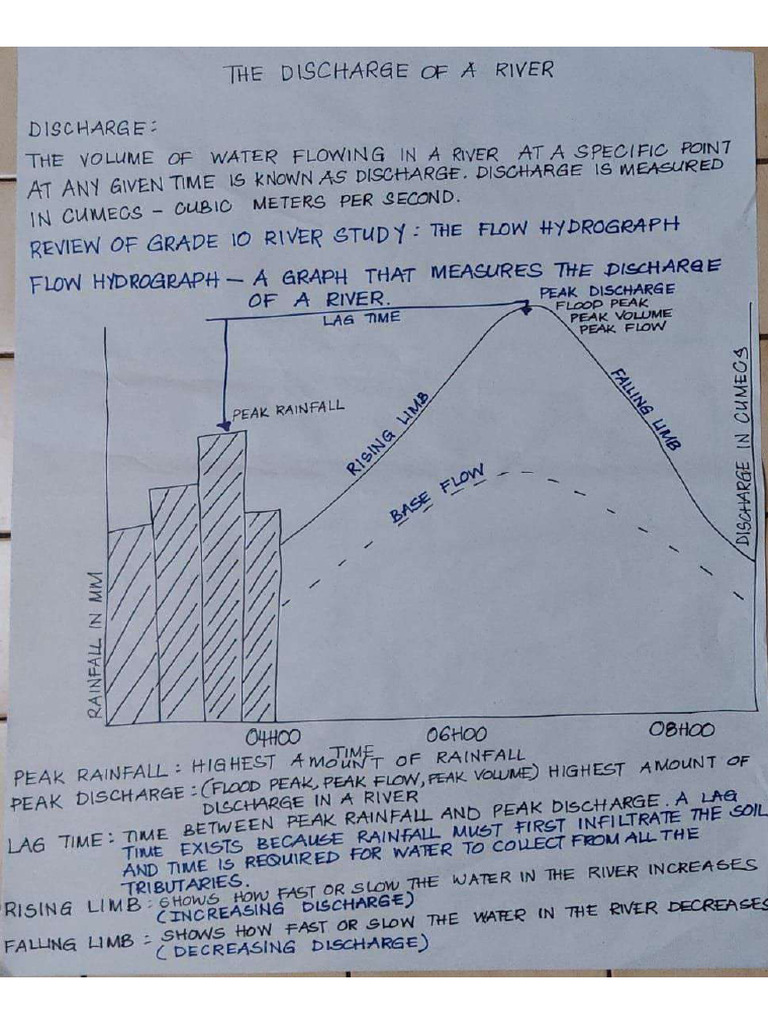 THE DISCHARGE OF A RIVER
DISCHARGE:
THE VOLUME OF WATER FLOWING IN A RIVER AT A SPECIFIC POINT
AT ANY GIVEN TIME IS KNOWN AS DISCHARGE. DISCHARGE IS MEASURED
IN CUMECS – CUBIC METERS PER SECOND.
REVIEW OF GRADE 10 RIVER STUDY: THE FLOW HYDROGRAPH
FLOW HYDROGRAPH – A GRAPH THAT MEASURES THE DISCHARGE
OF A RIVER.
PEAK DISCHARGE
FLOOD PEAK
PEAK VOLUME
PEAK FLOW
LAG TIME
PEAK RAINFALL
RISING LIMB
FALLING LIMB
BASE FLOW
RAINFALL IN MM
DISCHARGE IN CUMECS
04H00
06H00
08H00
TIME
PEAK RAINFALL: HIGHEST AMOUNT OF RAINFALL
PEAK DISCHARGE: (FLOOD PEAK, PEAK FLOW, PEAK VOLUME) HIGHEST AMOUNT OF
DISCHARGE IN A RIVER
LAG TIME: TIME BETWEEN PEAK RAINFALL AND PEAK DISCHARGE. A LAG
TIME EXISTS BECAUSE RAINFALL MUST FIRST INFILTRATE THE SOIL
AND TIME IS REQUIRED FOR WATER TO COLLECT FROM ALL THE
TRIBUTARIES.
RISING LIMB: SHOWS HOW FAST OR SLOW THE WATER IN THE RIVER INCREASES
(INCREASING DISCHARGE)
FALLING LIMB: SHOWS HOW FAST OR SLOW THE WATER IN THE RIVER DECREASES
(DECREASING DISCHARGE)